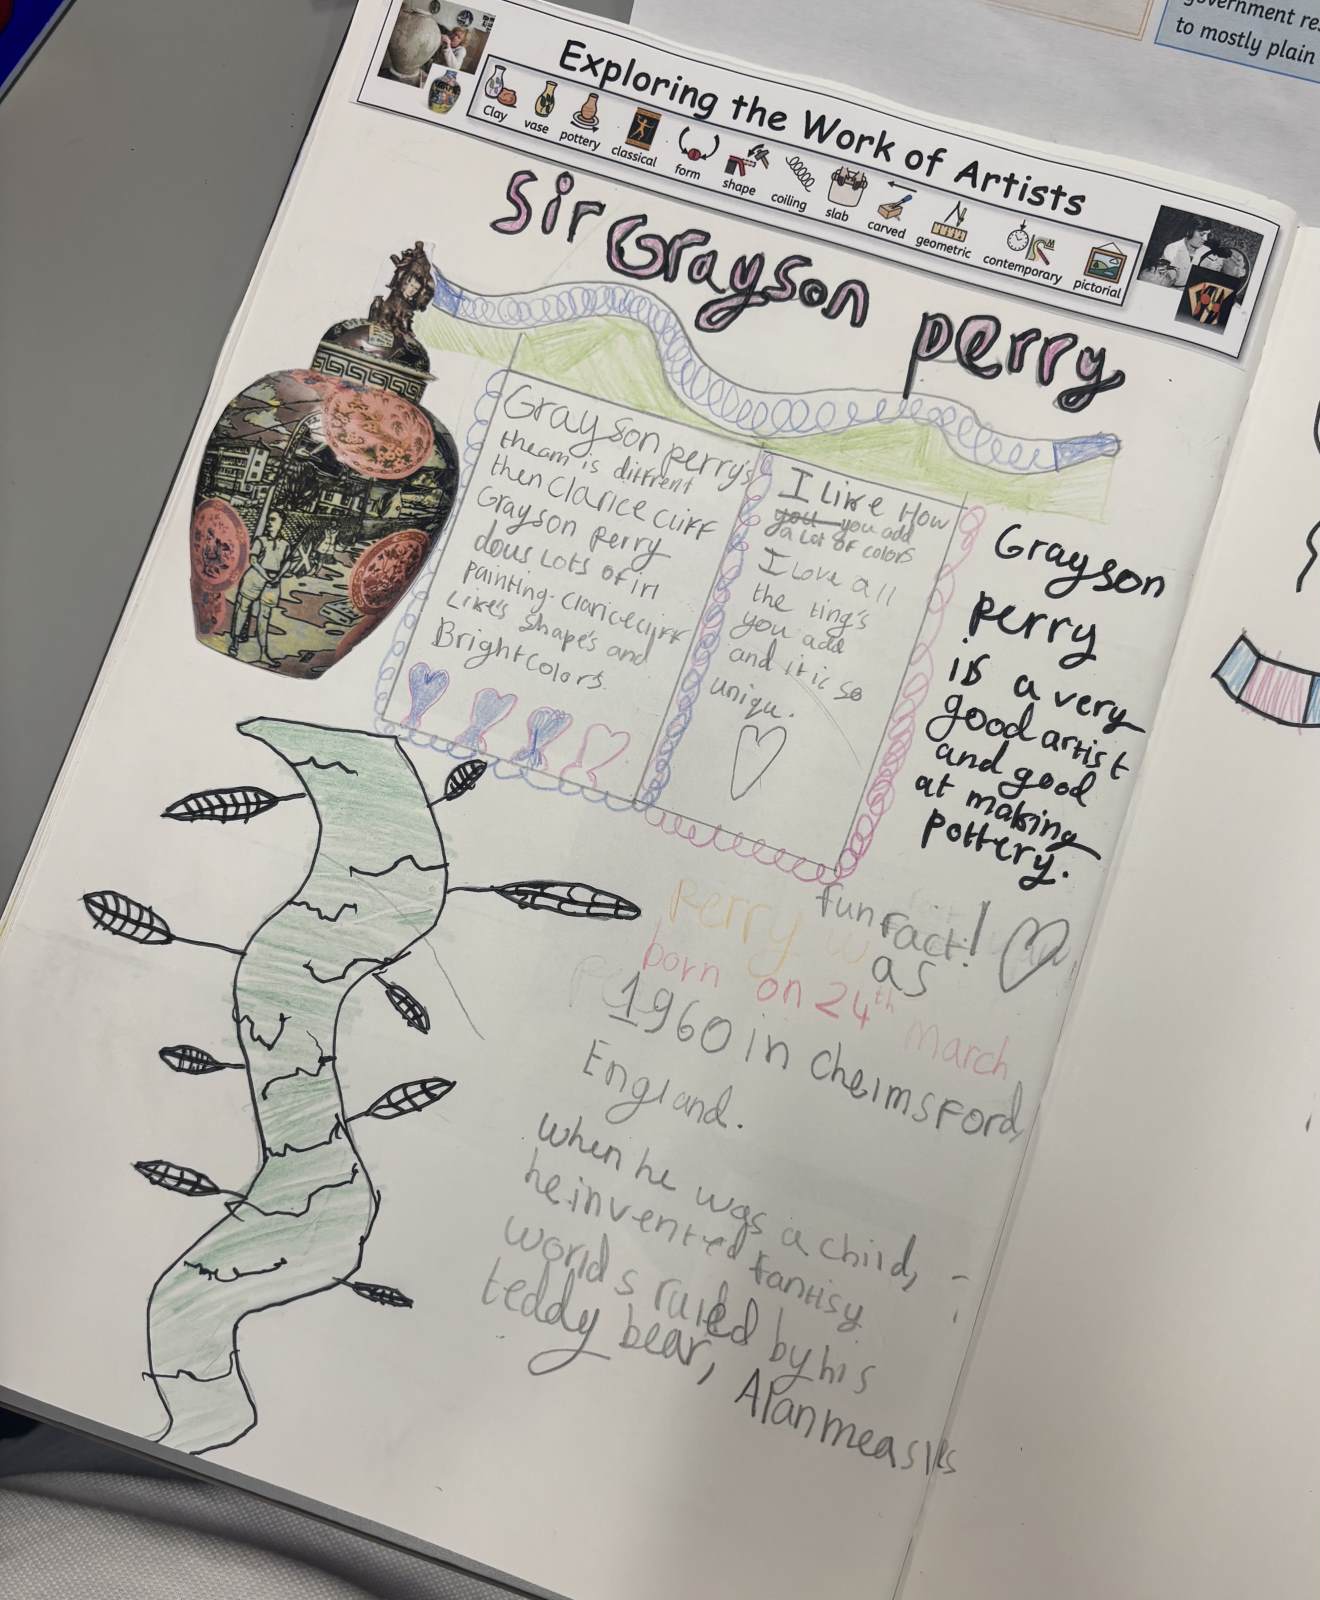 government re
to mostly plain
Exploring the Work of Artists
Clay vase pottery classical form shape coiling slab carved geometric contemporary pictorial
Sir Grayson perry
Grayson perry's
theam is diffrent
then Clarice cliff
Grayson perry
dous Lots of irl
painting. Clarice cliff
Like's shape's and
Bright colors.
I Like How
you you add
a Lot of colors
I Love all
the ting's
you add
and it is so
uniqu.
Grayson
perry
is a very
good artist
and good
at making
pottery.
fun Fact!
Perry was
born on 24th March
1960 in Chelmsford,
England.
when he was a child,
he invented fantisy
worlds ruled by his
teddy bear, Alan measles